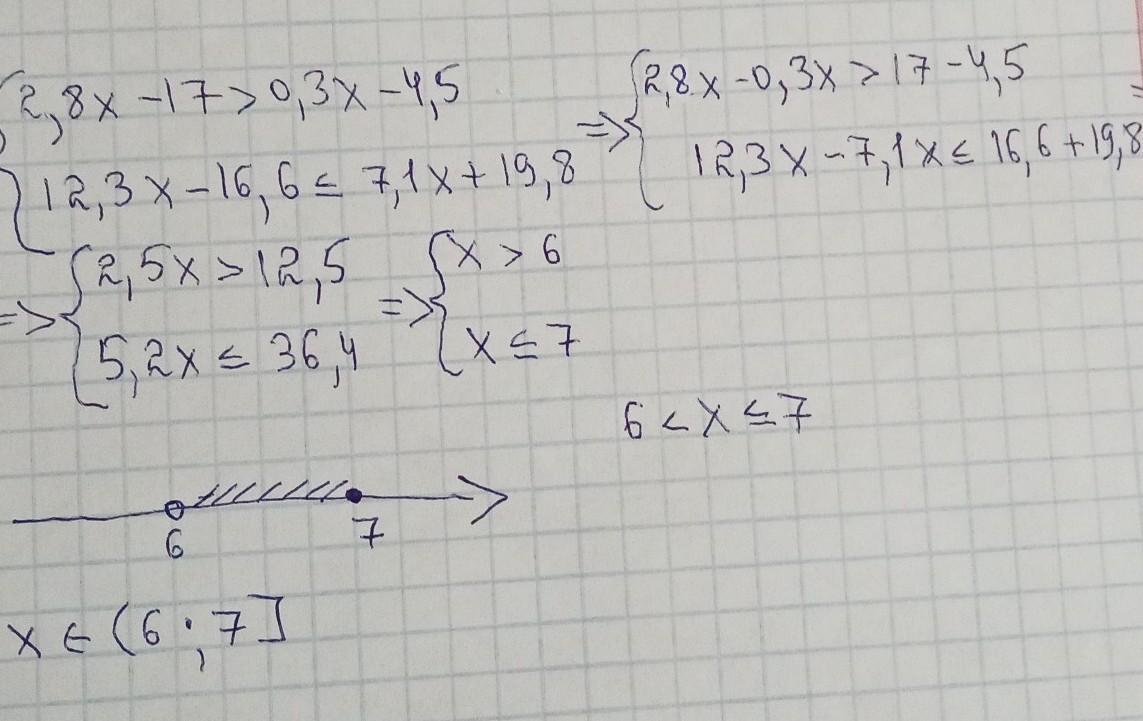 2,8x - 17 > 0,3x - 4,5
12,3x - 16,6 ≤ 7,1x + 19,8
=> 2,8x - 0,3x > 17 - 4,5
12,3x - 7,1x ≤ 16,6 + 19,8
=> 2,5x > 12,5
5,2x ≤ 36,4
=> x > 6
x ≤ 7
6 < x ≤ 7
6 7
x ∈ (6 ; 7]